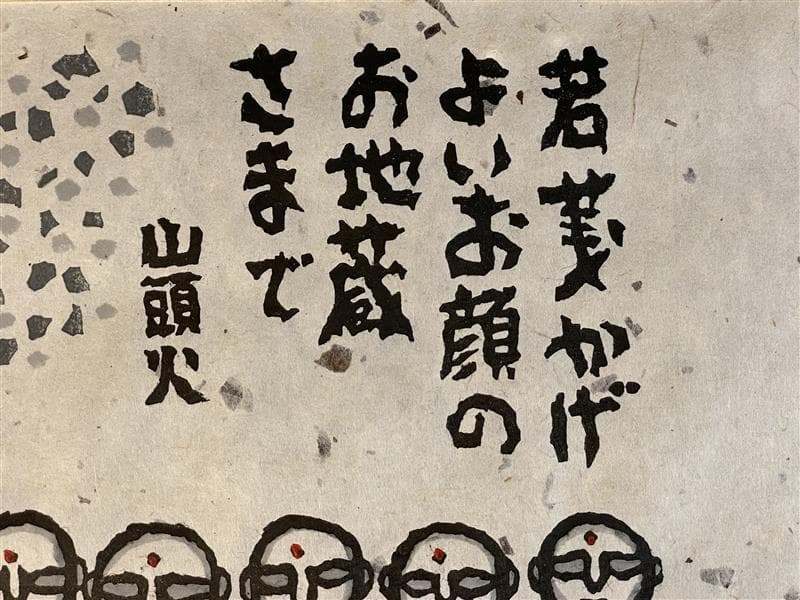 若葉かげ
よいお顔の
お地蔵
さまで
山頭火